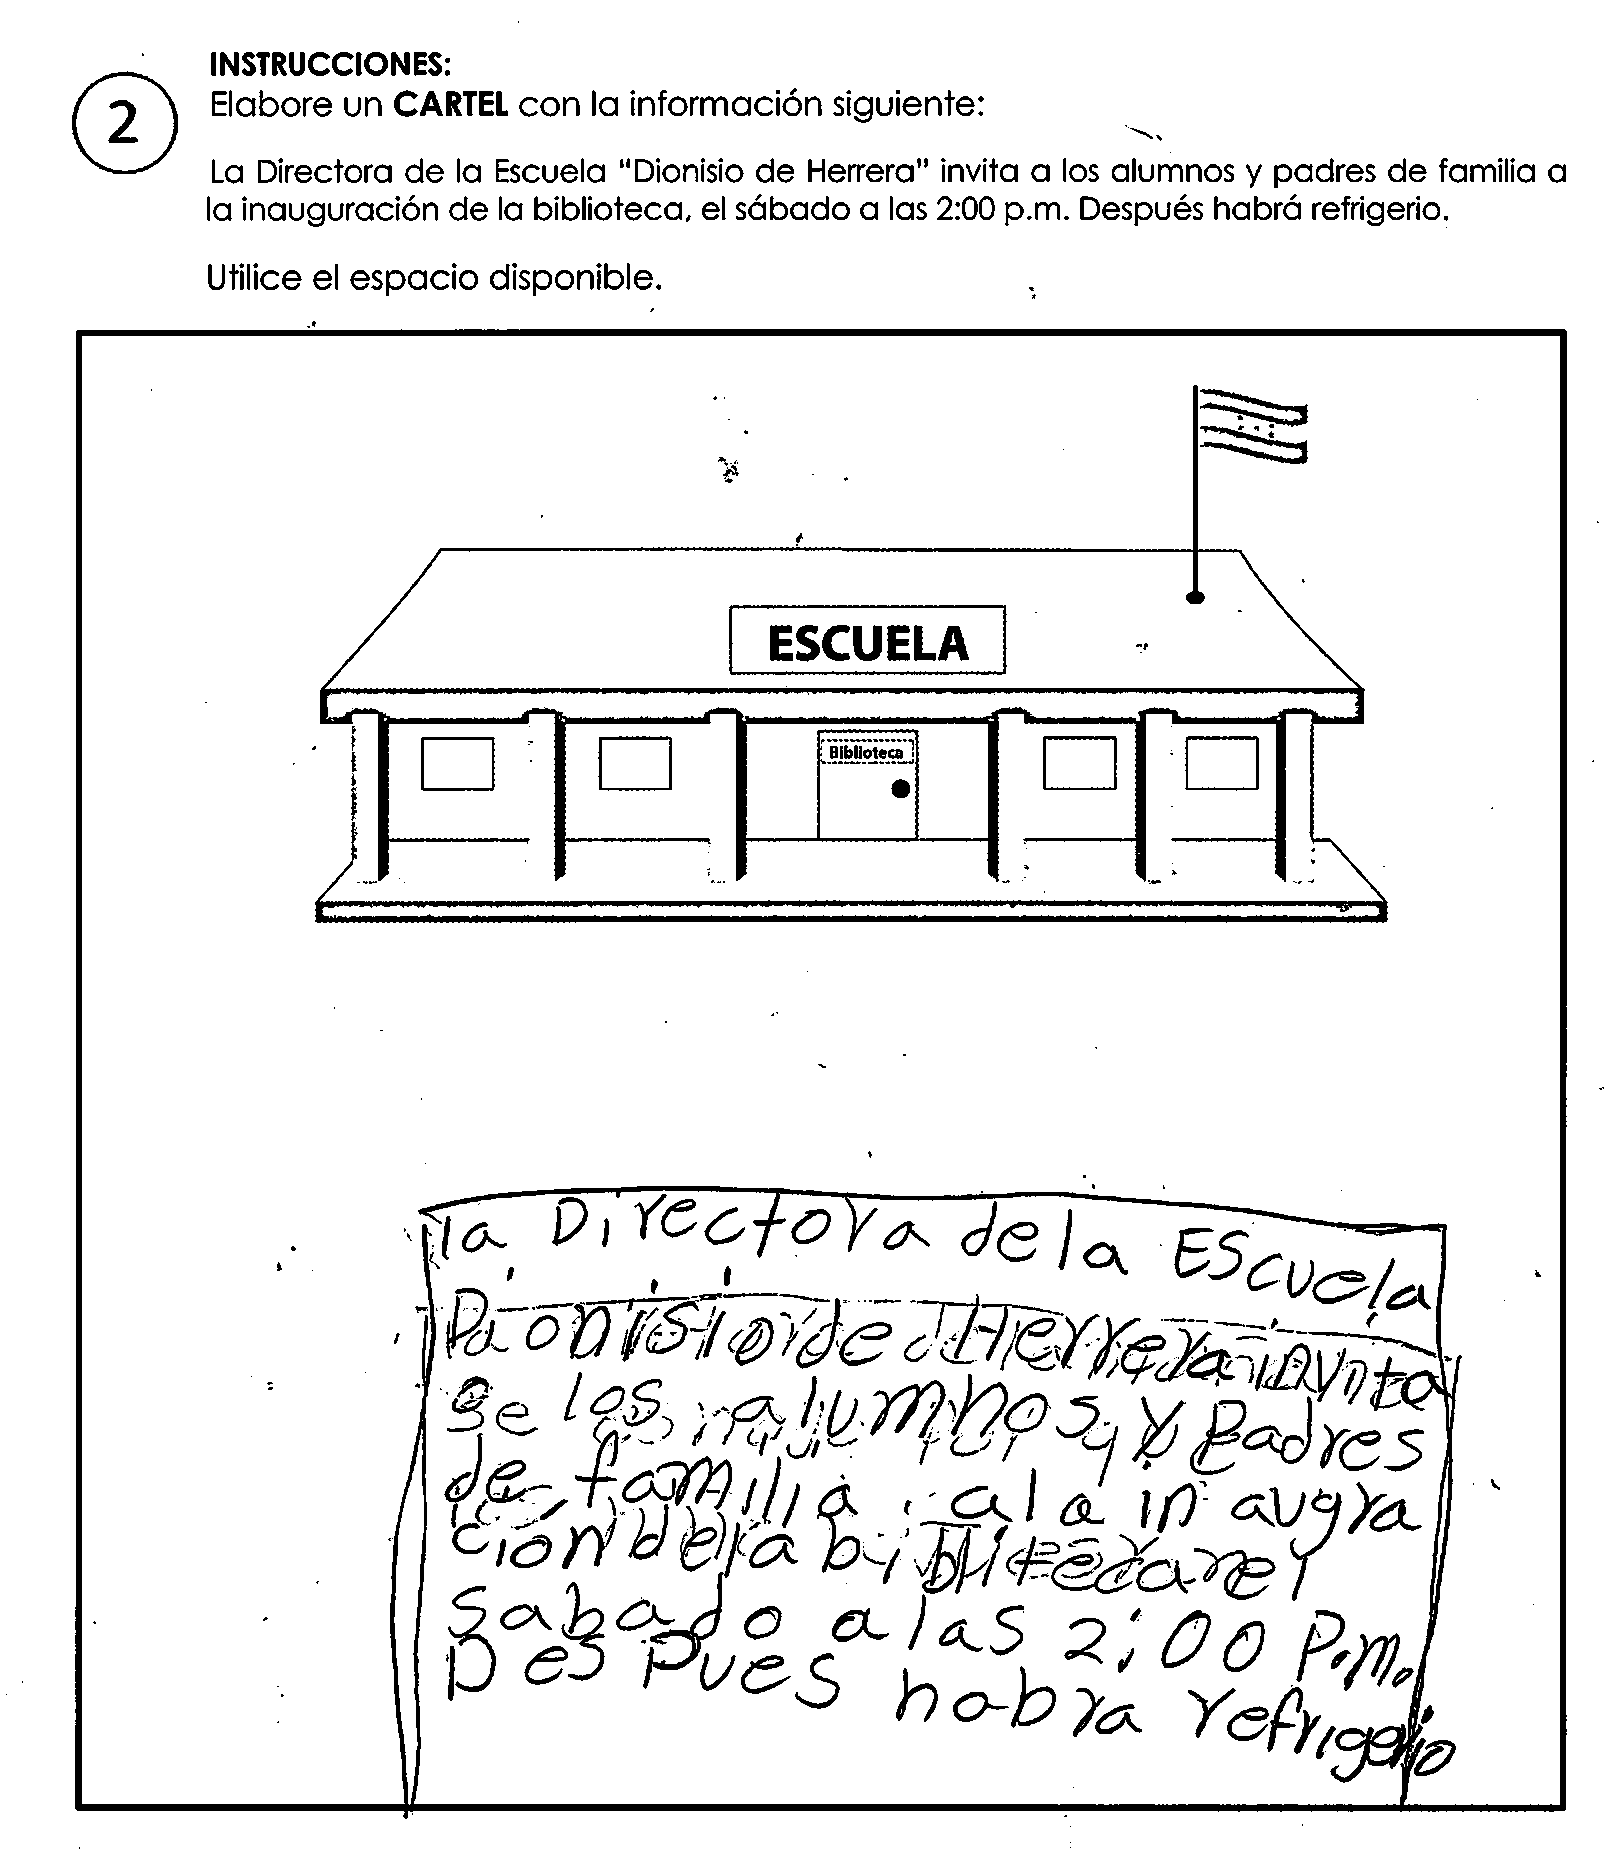 INSTRUCCIONES:
2
Elabore un CARTEL con la información siguiente:
La Directora de la Escuela "Dionisio de Herrera" invita a los alumnos y padres de familia a
la inauguración de la biblioteca, el sábado a las 2:00 p.m. Después habrá refrigerio.
Utilice el espacio disponible.
ESCUELA
Biblioteca
la Directora de la EScuela
Dionisio de Herrera
los alumnos y Padres
de familia a la in augra
cion de la
Sabado a las 2:00 P.m.
Des Pues habra refrigerio